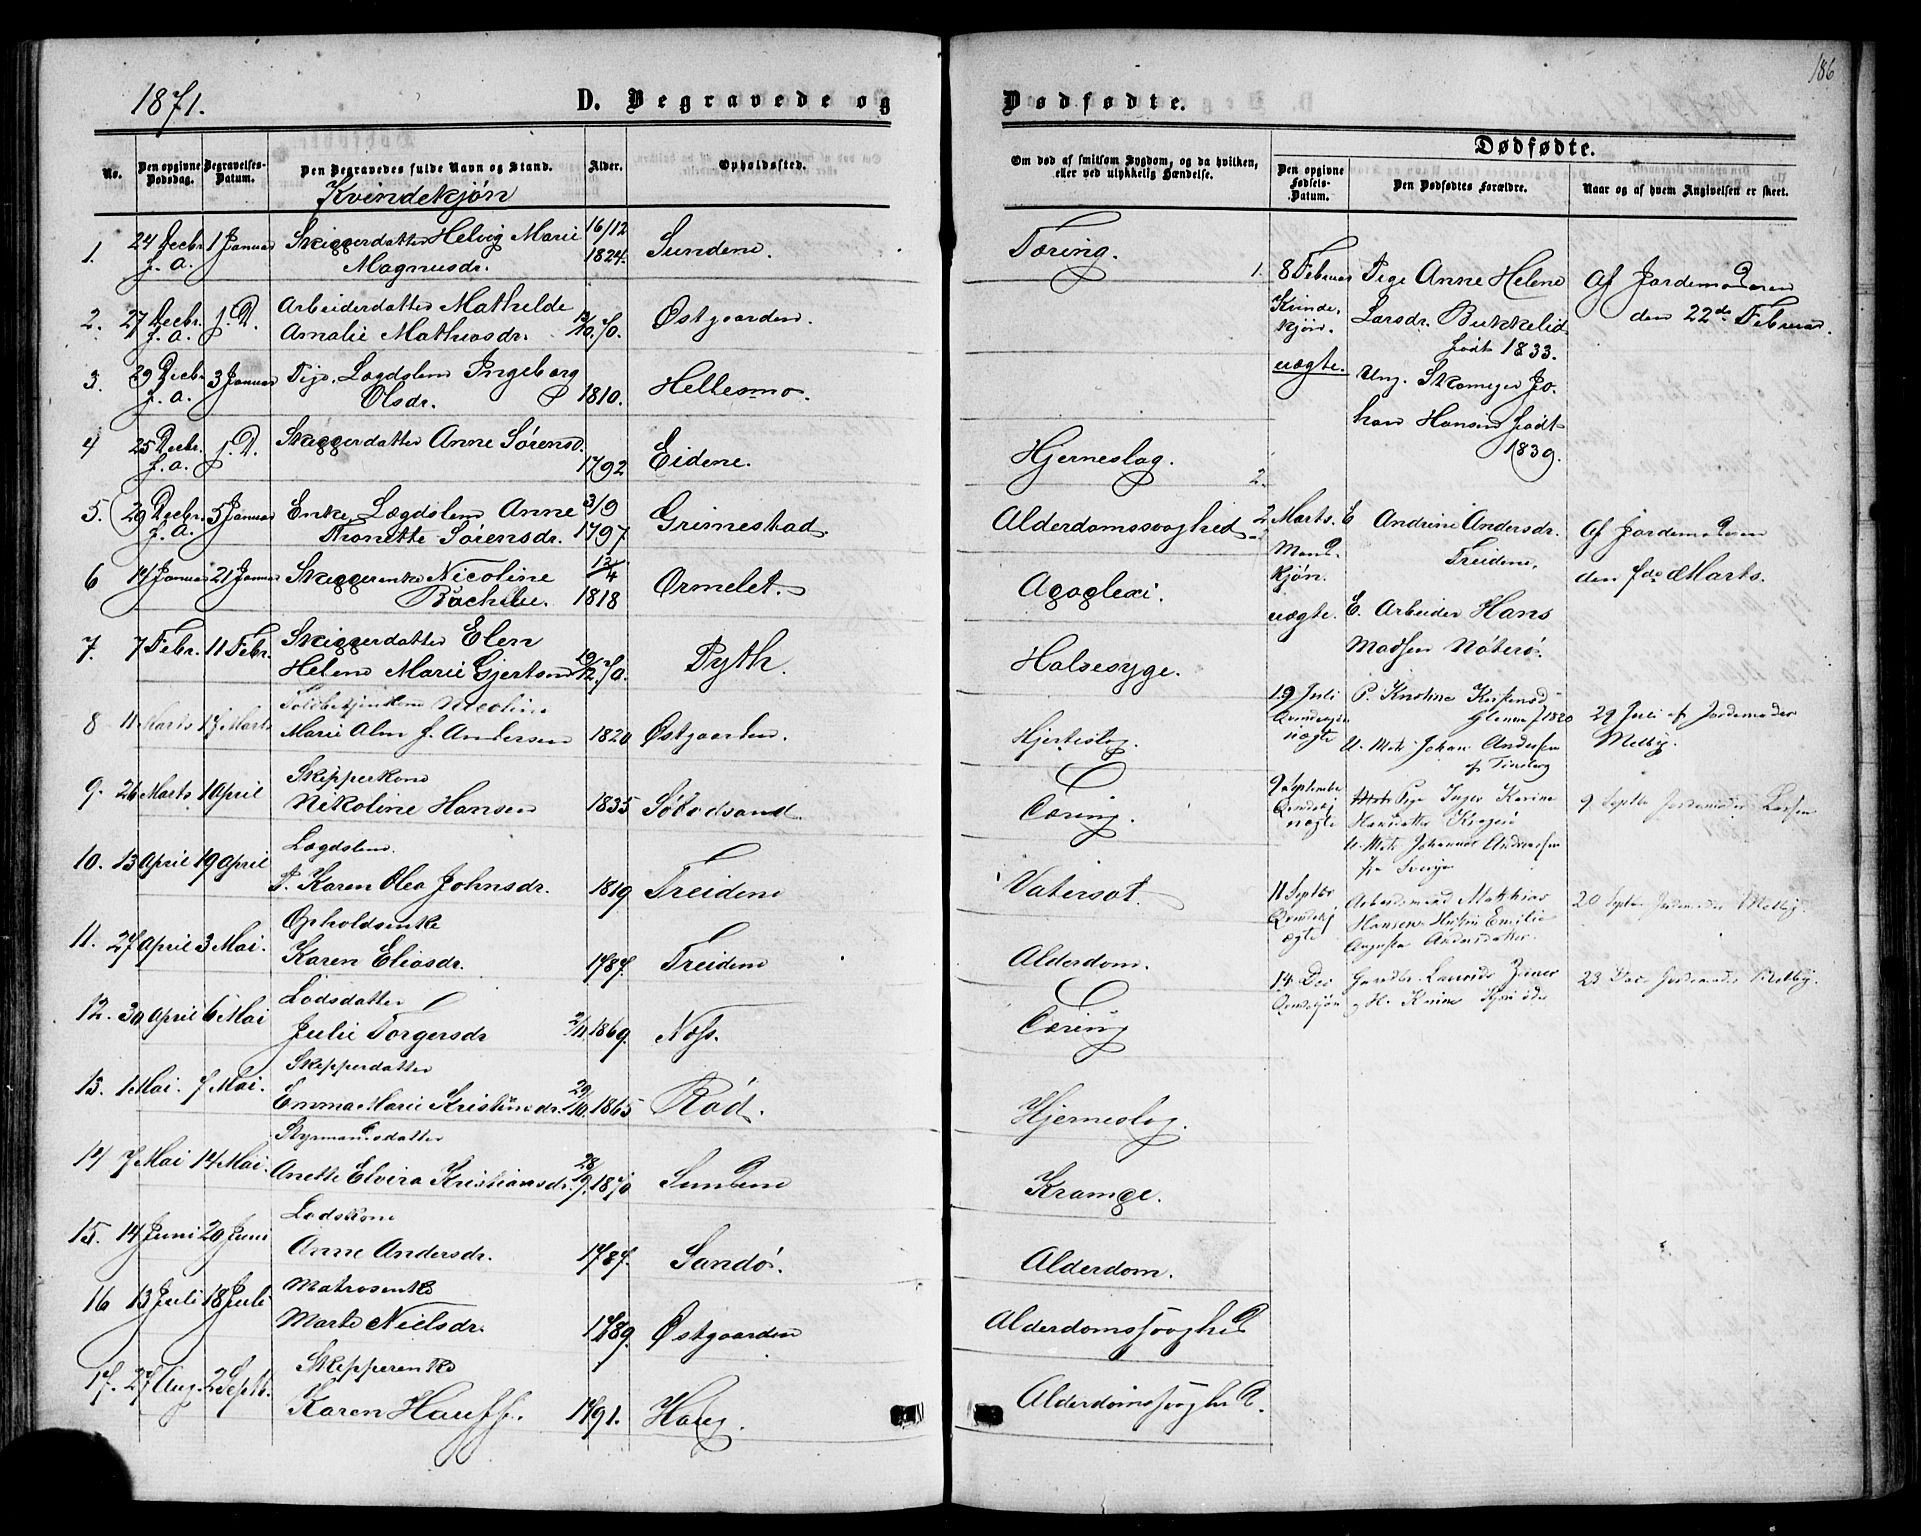 186
1871.
D. Begravede og
Dødfødte.
No.
Den opgivne Dødsdag.
Begravelses-Datum.
Den Begravedes fulde Navn og Stand.
Kvindekjøn
Alder.
Opholdssted.
Om død af smitsom Sygdom, og da hvilken,
eller ved ulykkelig Hændelse.
Dødfødte.
Den opgivne Fødsels-Datum.
Den Dødfødtes Forældre.
Naar og af hvem Angivelsen er skeet.
1. 24 Decbr f. a. 1 Januar Skiggerdatter Helvig Marie 16/12
Magnusdr. 1824. Sundene. Tæring.
2. 27 Decbr. f. a. s. D. Arbeiderdatter Mathilde
Amalie Mathiasdr. 70. Østgaarden.
3. 29 Decbr f. a. 3 Januar Lægdslem Ingeborg
Olsdr. 1810. Hellesmo.
4 25 Decbr. f. a. s. D. Skiggerdatter Anne Sørensd.
1792 Eidene. Hjerneslag.
5. 29 Decbr. f. a. 5 Januar Enke, Lægdslem Anne 3/9
Tronette Sørensdr. 1797 Grimestad Alderdomssvaghed
6 14 Januar 21 Januar Skiggerenke Nicoline 13/4
1818 Ormelet.
7. 7 Febr. 11 Febr. Skiggerdatter Elen
Helene Marie Gjertsen 70. Pyth. Halsesyge.
8 11 Marts 17 Marts Nicoline
Marie Alm f. Andersen 1820 Østgaarden. Hjerteslag
9. 26 Marts 1 April Skipperkone
Nikoline Hansen 1835 Tæring.
10. 13 April 19 April Lægdslem.
P. Karen Olea Johnsdr. 1819 Treidene Vatersot.
11. 27 April 3 Mai. Opholdsenke
Karen Eliasdr. 1787. Treidene Alderdom.
12. 30 April 6 Mai Lodsdatter
Julie Torgersdr 2/11 1869. Næss. Tæring
13. 1 Mai. 7 Mai. Skipperdatter
Emma Marie Kristinedr. 29/10. 1865 Rød. Hjerneslag.
14 7 Mai 14 Mai. Styrmandsdatter
Anette Elvira Kristiansdr. 28/9. 1870 Sundene Krampe.
15. 14 Juni 20 Juni Lodskone
Anne Andersdr. 1787. Sandø. Alderdom.
16 13 Juli 18 Juli Matrosenke
Marte Nielsdr. 1789. Østgaarden Alderdomssvaghed
17. 27 Aug. 2 Septb. Skipperenke
Karen Hauff. 1791. Haug. Alderdomssvaghed.
1. 8 Februar Pige Anne Helene Af Jordemoderen
Kvinde- Larsdr. Bukkelid den 22de Februar.
kjøn. født 1833.
uægte. Ung. Skomager Jo-
han Hansen født
1839.
2. 2 Marts. E Andrine Andersdr. Af Jordemoderen
Mand- Treidene, den Marts.
kjøn.
uægte. E. Arbeider Hans
Madsen Nøterø.
19 Juli 29 Juli af Jordemoder
uægte 1820 Melby.
U. Mtr. Johan Andersen
af Tønsberg
9 September Pige Inger Karine 9 Septbr Jordemoder Larsen
uægte
U. Mtr. Johannes Andreassen
fra Sverige
11 Septbr Arbeidsmand Mathias 20 Septbr Jordemoder Melby.
Hansen Hustru Emilie
ægte Augusta Andersdatter.
14 Dec 23 Dec Jordemoder Melby.